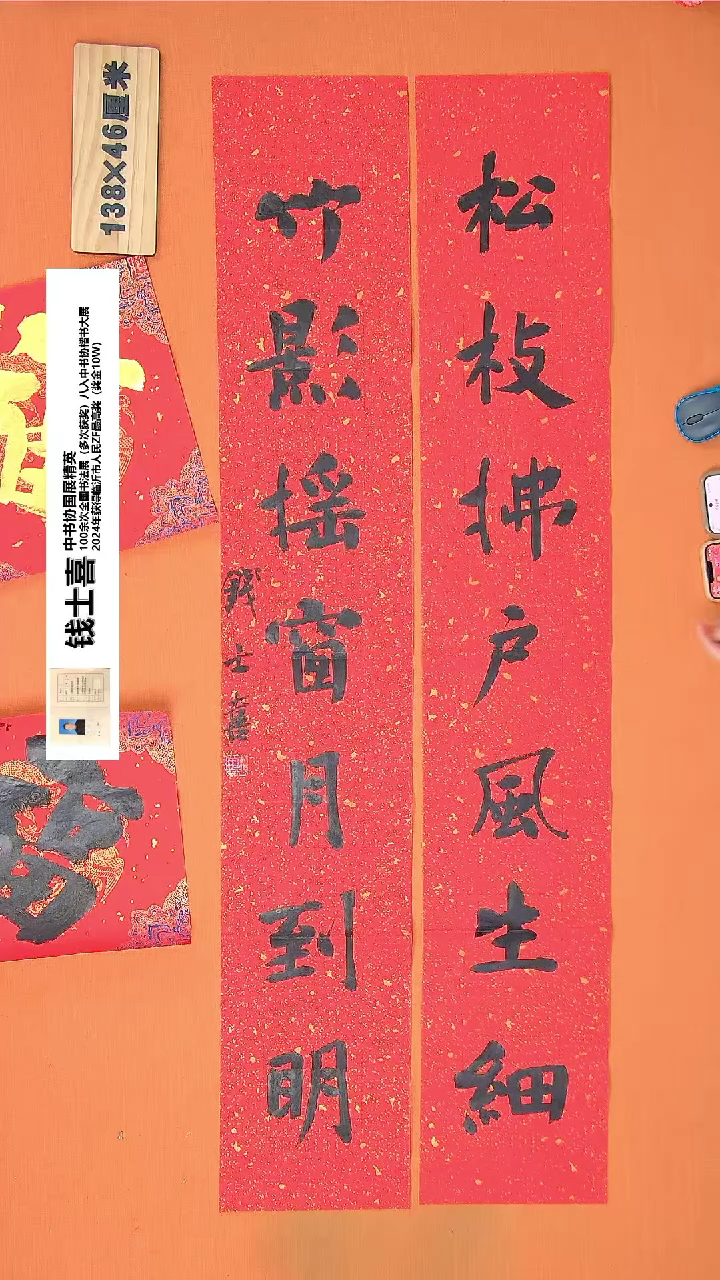 松枝拂戶風生細
竹影摇窗月到明
錢士喜
138×46厘米
钱士喜 中书协国展精英
100余次全国书法展（多次获奖）八入中书协楷书大展
2024年获得临沂市人民ZF最高奖（奖金10W）